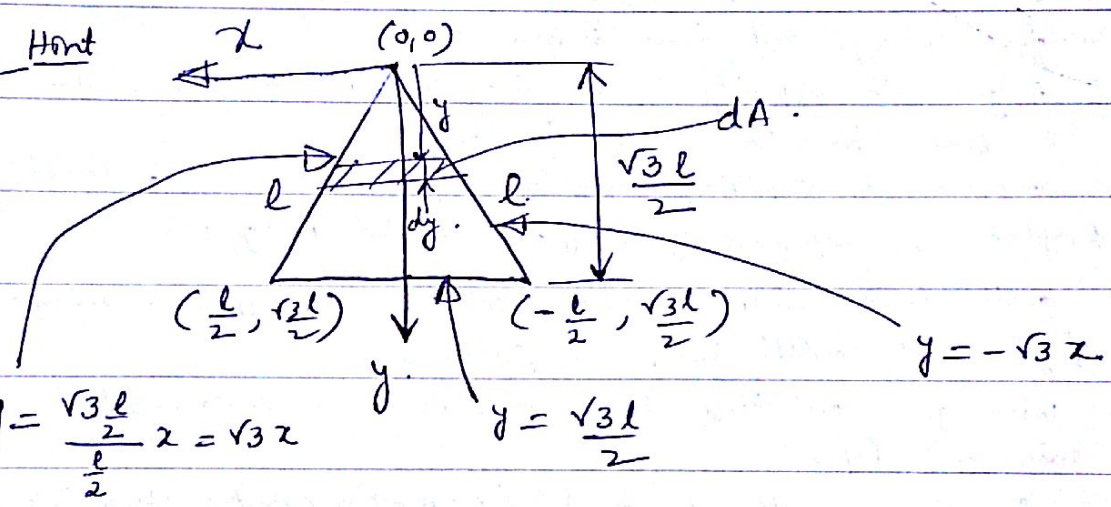 Hint
x
(0,0)
y
dA.
√3 l / 2
l
l.
dy.
(l/2, √3l/2)
(-l/2, √3l/2)
y = -√3 x.
y.
= (√3 l/2)/(l/2) x = √3 x
y = √3 l / 2